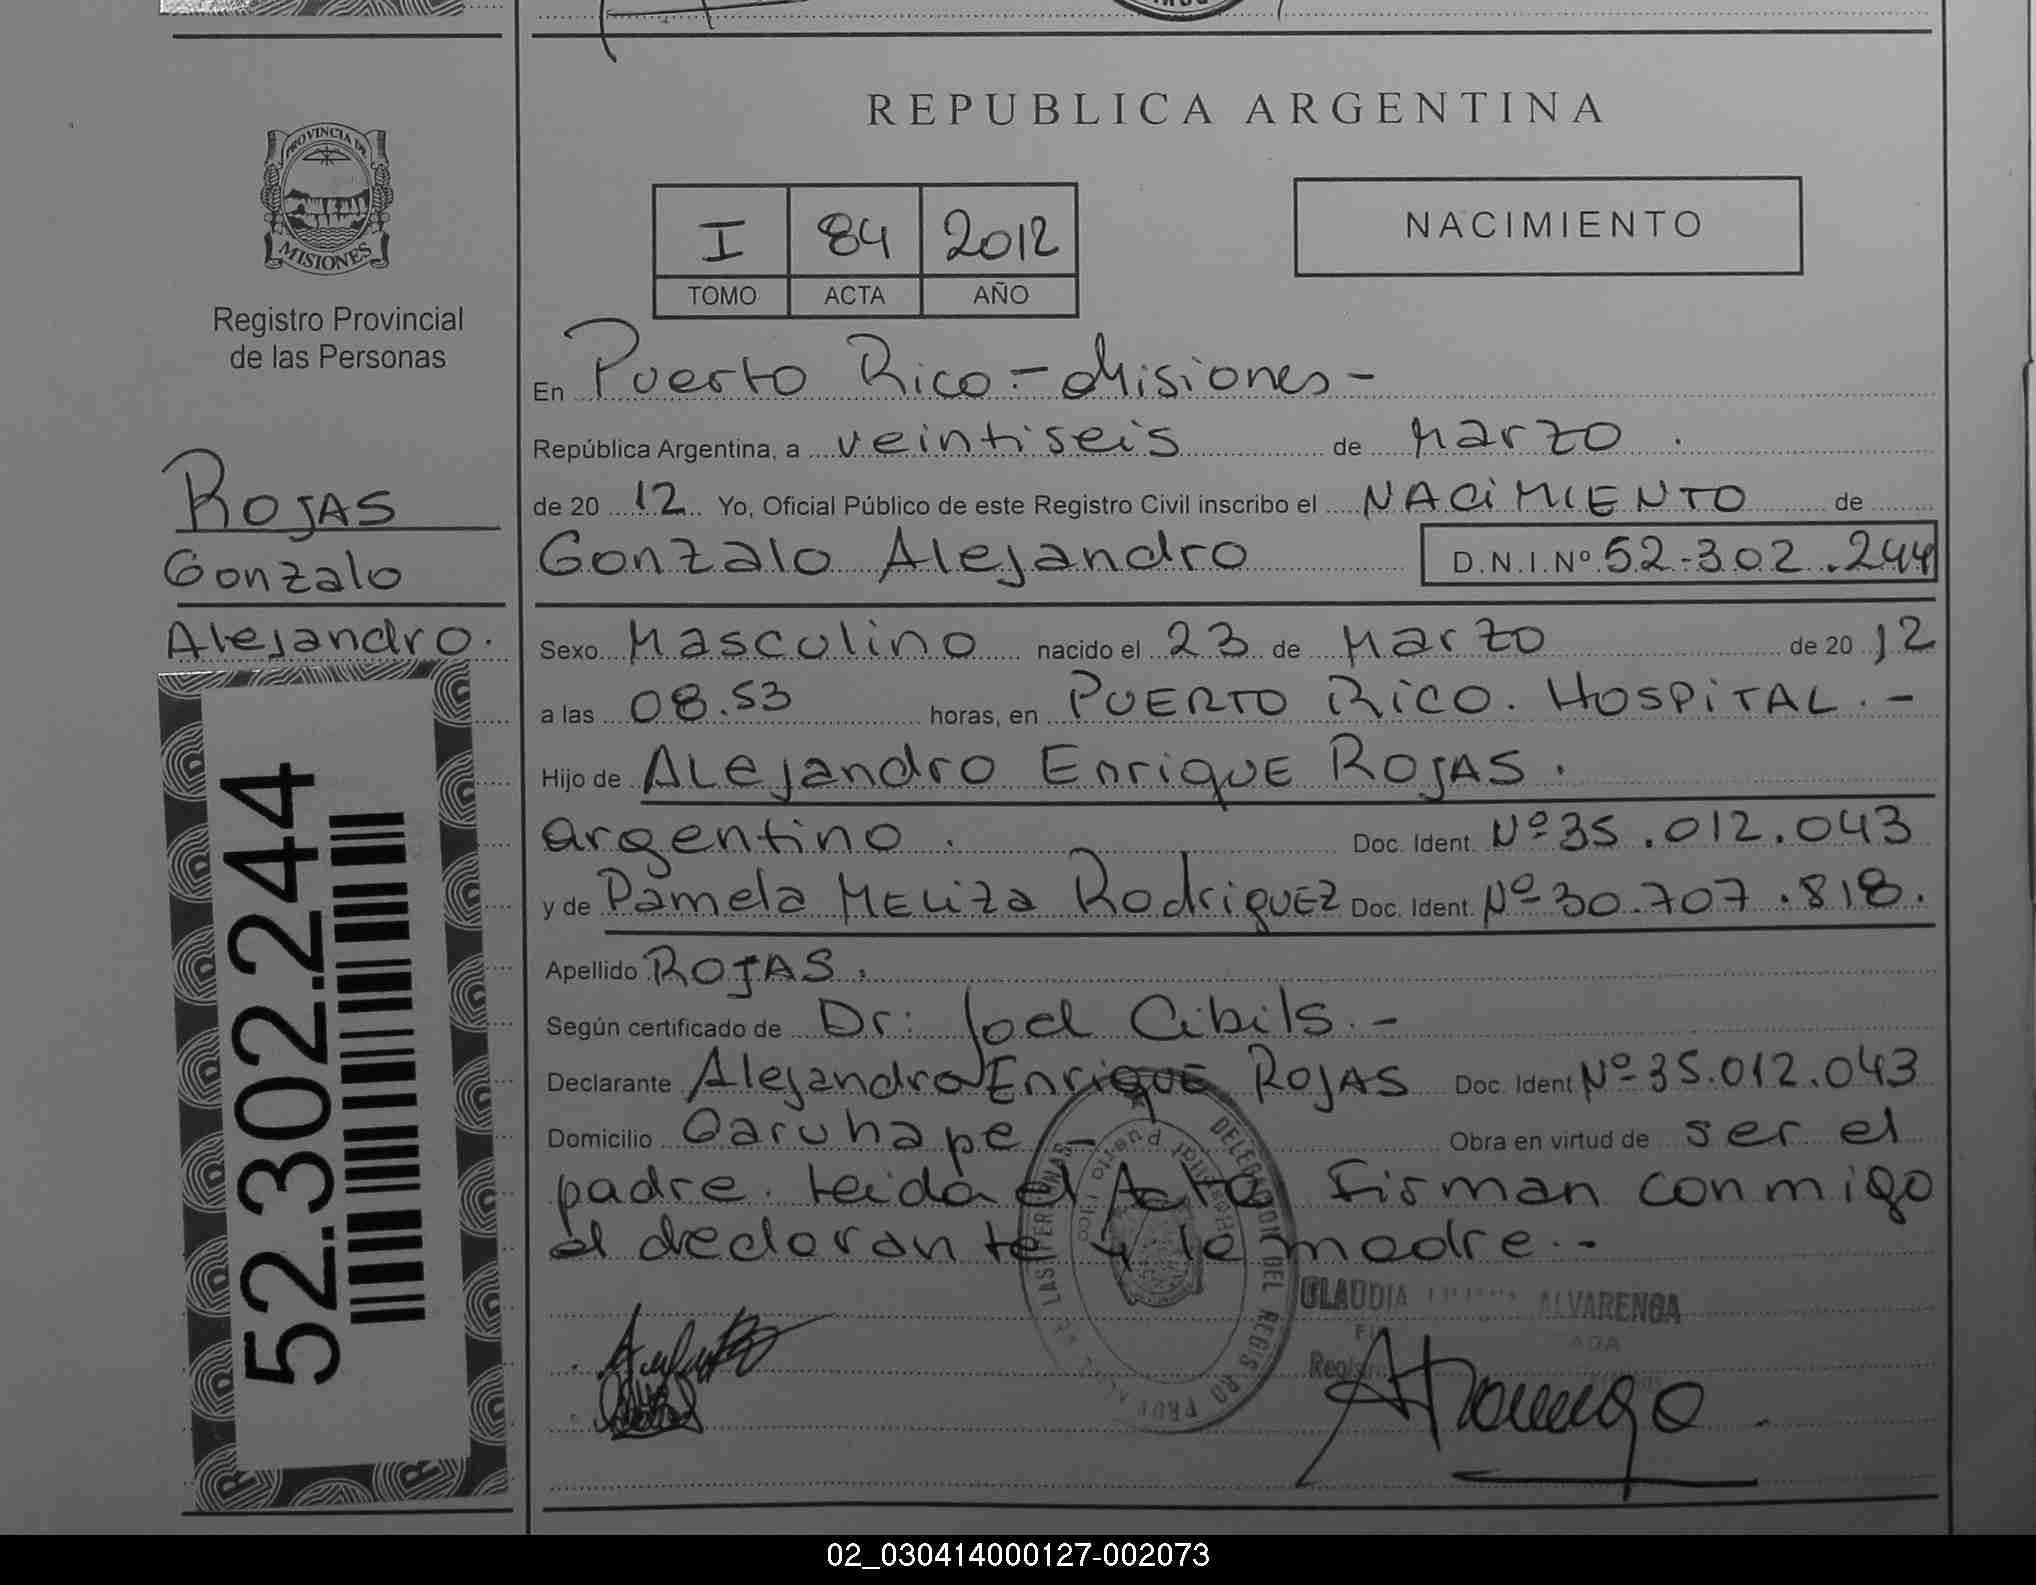 REPUBLICA ARGENTINA
PROVINCIA DE
MISIONES
Registro Provincial
de las Personas
I 84 2012
TOMO ACTA AÑO
NACIMIENTO
En Puerto Rico.- Misiones -
República Argentina, a veintiseis de Marzo .
de 20 12 Yo, Oficial Público de este Registro Civil inscribo el NACIMIENTO de
Gonzalo Alejandro D.N.I.Nº 52-302.244
ROJAS
Gonzalo
Alejandro.
Sexo Masculino nacido el 23 de Marzo de 20 12
a las 08.53 horas, en PUERTO RICO. HOSPITAL.-
Hijo de Alejandro Enrique ROJAS.
argentino. Doc. Ident. Nº 35.012.043
y de Pamela Meliza Rodriguez Doc. Ident. Nº 30.707.818.
Apellido ROJAS.
Según certificado de Dr: Joel Cibils.-
Declarante Alejandro Enrique ROJAS Doc. Ident. Nº 35.012.043
Domicilio Garuhape - Obra en virtud de ser el
padre. leida el Acta Firman conmigo
el declarante y la madre.-
52.302.244
DELEGACION DEL REGISTRO PROV DE LAS PERSONAS
Hospital Puerto Rico
CLAUDIA ALVARENGA
02_030414000127-002073